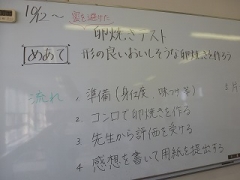 10/2〜
卵焼きテスト
[めあて] 形の良いおいしそうな卵焼きを作ろう
流れ 1. 準備(身仕度
2 コンロで卵焼きを作る
3 先生から評価を受ける
4 感想を書いて用紙を提出する